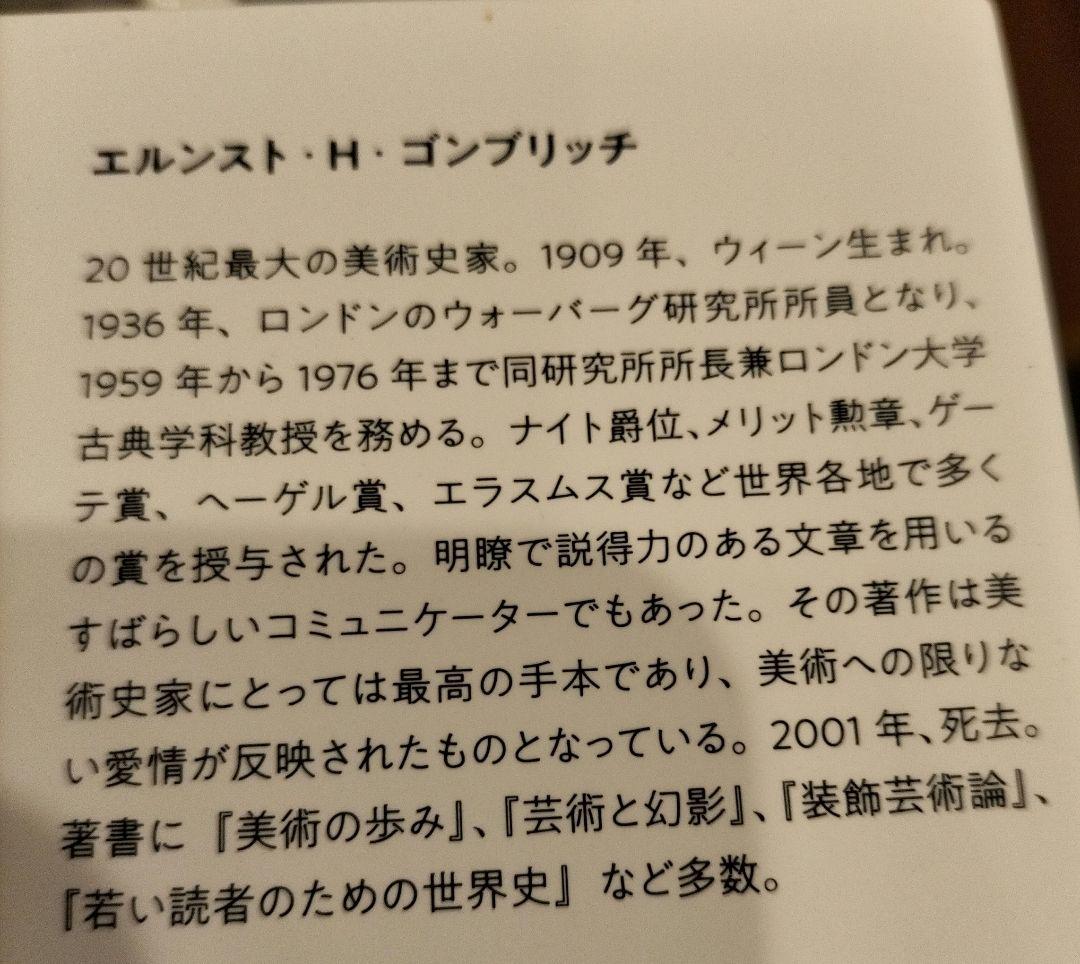 エルンスト・H・ゴンブリッチ
20 世紀最大の美術史家。1909 年、ウィーン生まれ。
1936 年、ロンドンのウォーバーグ研究所所員となり、
1959 年から 1976 年まで同研究所所長兼ロンドン大学
古典学科教授を務める。ナイト爵位、メリット勲章、ゲー
テ賞、ヘーゲル賞、エラスムス賞など世界各地で多く
の賞を授与された。明瞭で説得力のある文章を用いる
すばらしいコミュニケーターでもあった。その著作は美
術史家にとっては最高の手本であり、美術への限りな
い愛情が反映されたものとなっている。2001 年、死去。
著書に『美術の歩み』、『芸術と幻影』、『装飾芸術論』、
『若い読者のための世界史』など多数。